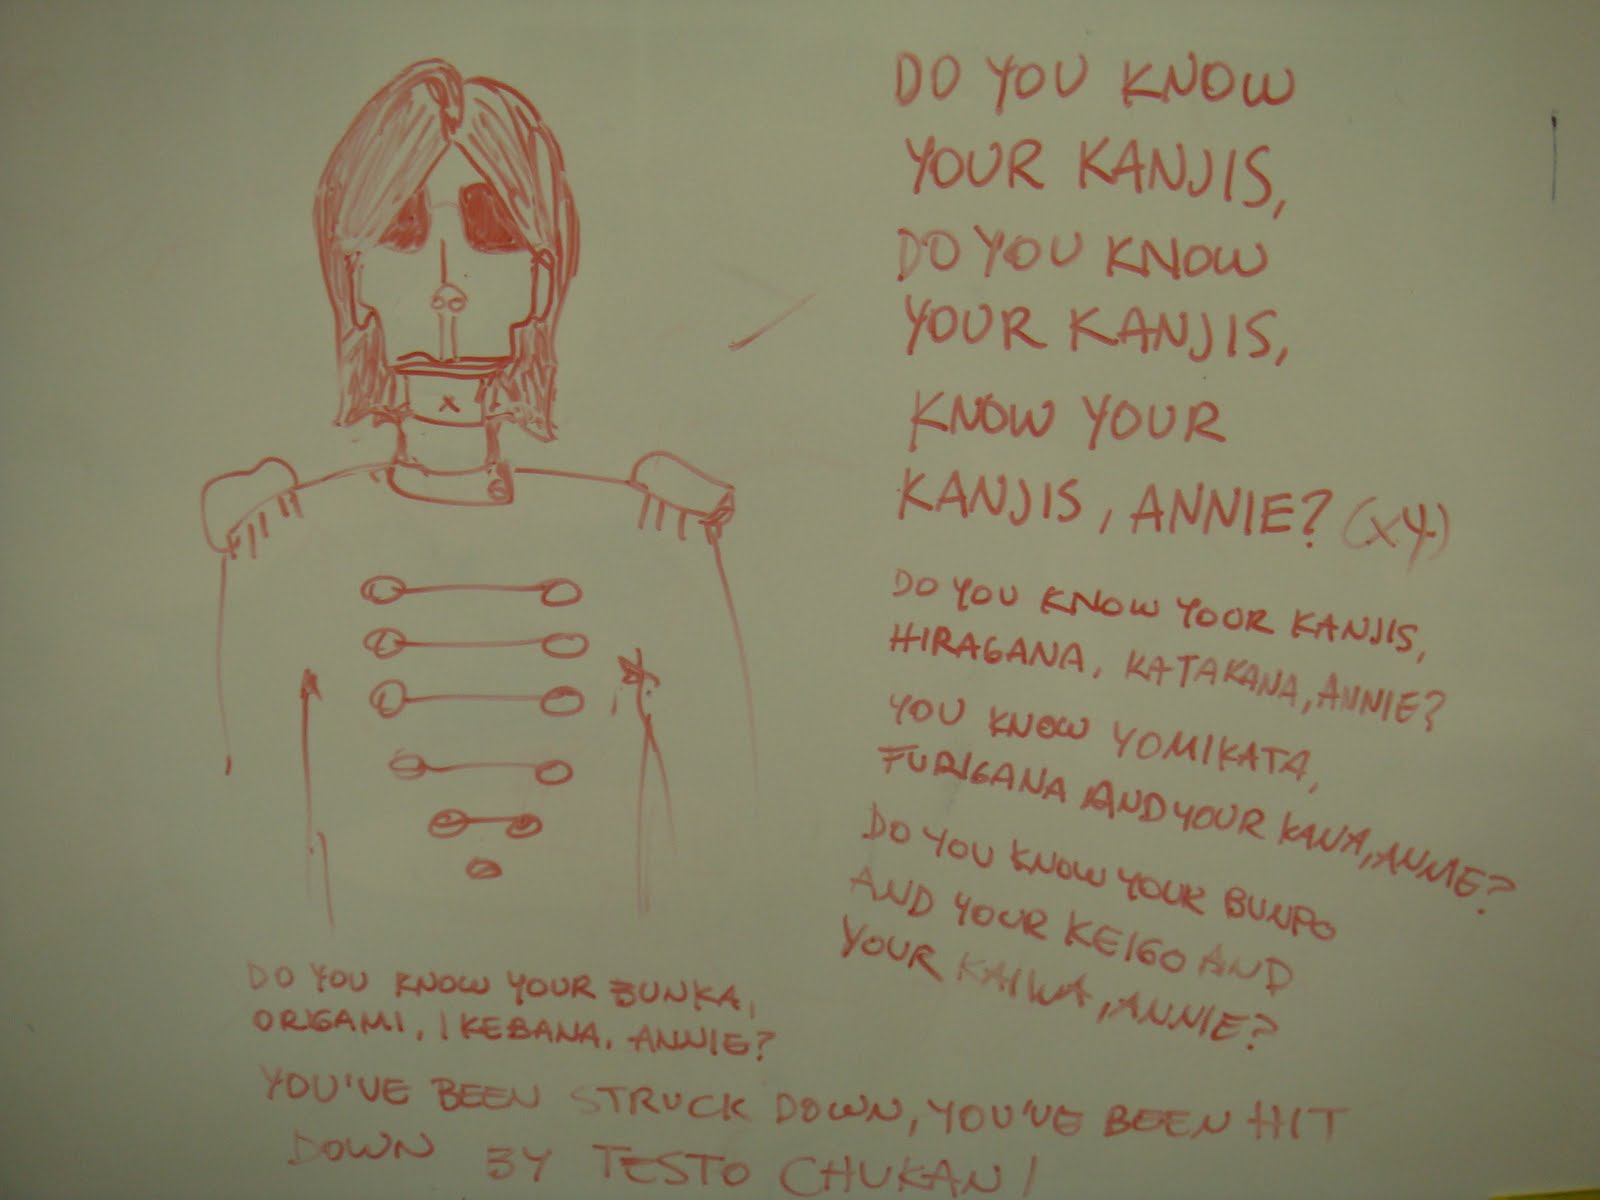 DO YOU KNOW
YOUR KANJIS,
DO YOU KNOW
YOUR KANJIS,
KNOW YOUR
KANJIS, ANNIE? (x4)
DO YOU KNOW YOOR KANJIS,
HIRAGANA, KATAKANA, ANNIE?
YOU KNOW YOMIKATA,
FURIGANA AND YOUR KANA, ANNIE?
DO YOU KNOW YOUR BUNPO
AND YOUR KEIGO AND
YOUR KAIWA, ANNIE?
DO YOU KNOW YOUR BUNKA,
ORIGAMI, IKEBANA, ANNIE?
YOU'VE BEEN STRUCK DOWN, YOU'VE BEEN HIT
DOWN BY TESTO CHUKAN!